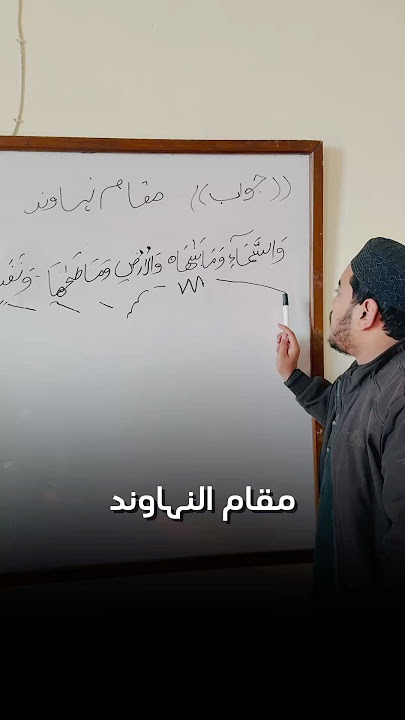 ((جوب)) مقام نہاوند
وَالسَّمَآءِ وَمَا بَنٰىهَا ○ وَالْاَرْضِ وَمَا طَحٰىهَا - وَنَفْسٍ
مقام النہاوند